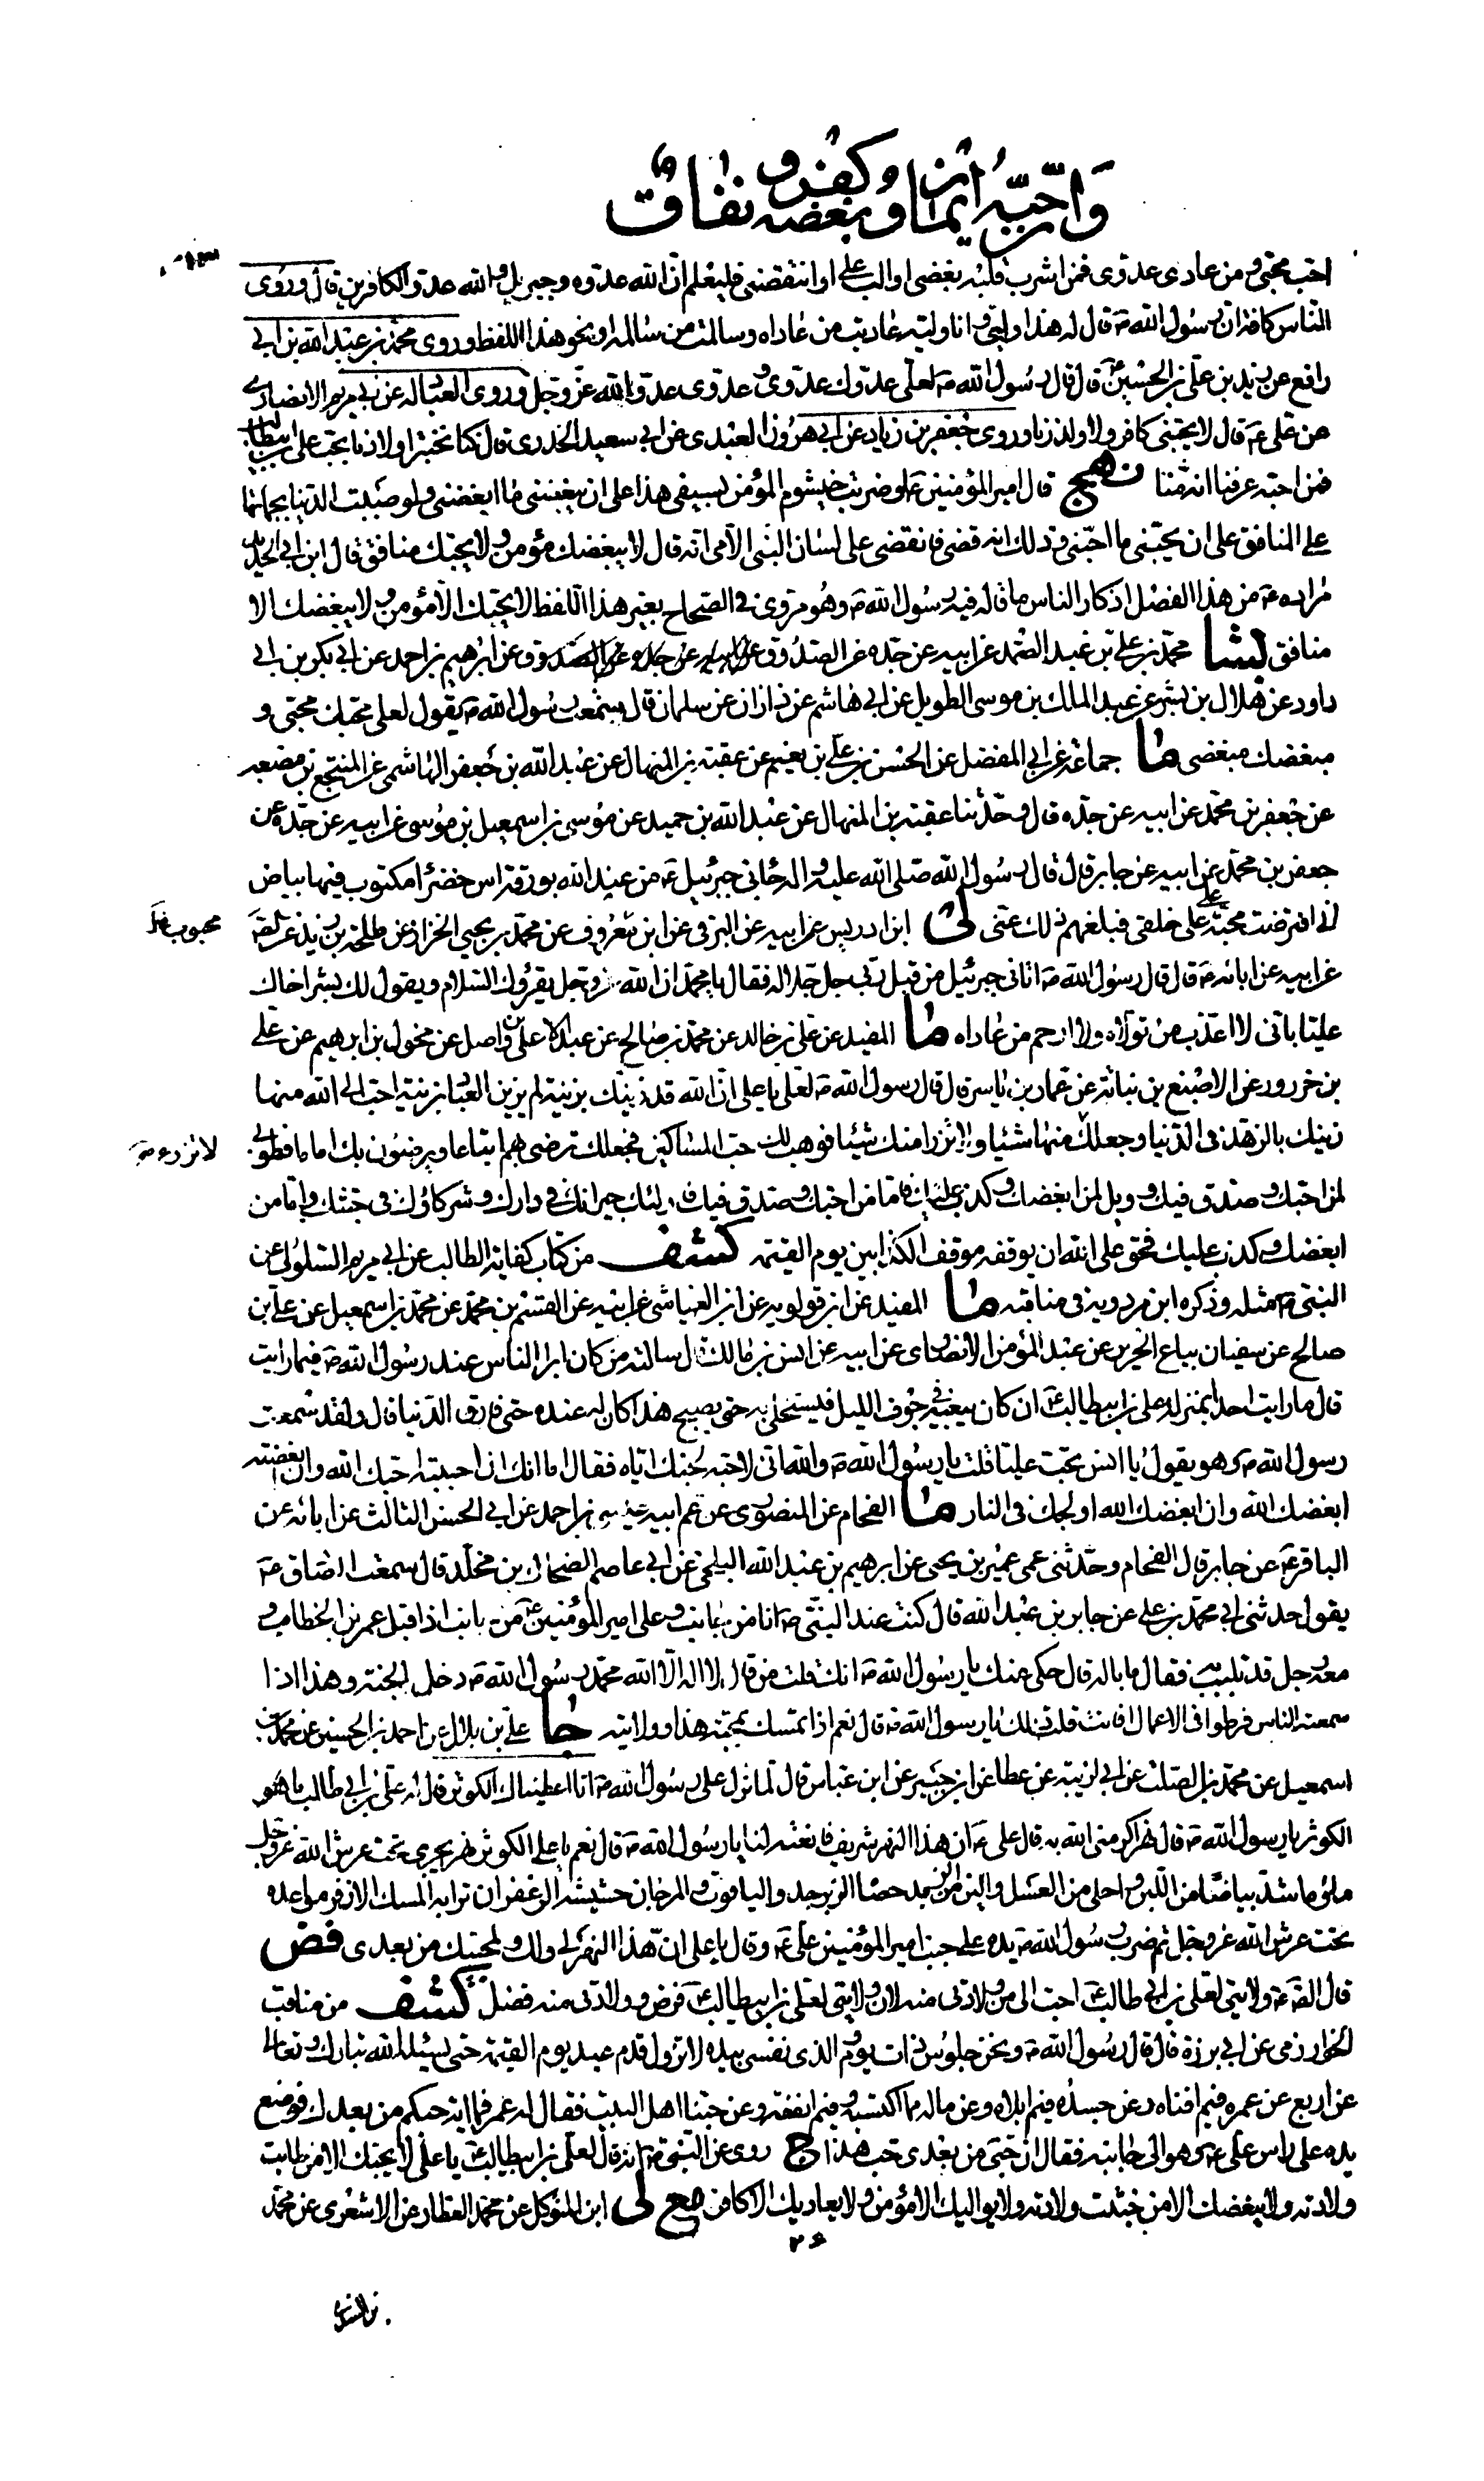 وان حبه ايمان وبغضه كفر ونفاق
احب محبى و من عادى عدوى فمن اشرب قلبه بغضى او الب على او انتقصنى فليعلم ان الله عدوه وجبريل والله عدو الكافرين قال وروى
الناس كافة ان رسول الله ص قال له هذا وليى وانا وليه عاديت من عاداه وسالمت من سالمه او نحو هذا اللفظ وروى محمد بن عبيد الله بن ابى
رافع عن زيد بن على بن الحسين ع قال قال رسول الله ص لعلى عدوك عدوى و عدوى عدو الله عز وجل وروى عن ابى مريم الانصارى
عن على ع قال لا يحبنى كافر ولا ولد زنا وروى جعفر بن زياد عن ابى هرون العبدى عن ابى سعيد الخدرى قال كنا نختبر اولادنا بحب على بن ابيطالب
فمن احبه عرفنا انه منا نهج قال امير المؤمنين ع لو ضربت خيشوم المؤمن بسيفى هذا على ان يبغضنى ما ابغضنى ولو صببت الدنيا بجماتها
على المنافق على ان يحبنى ما احبنى وذلك انه قضى فانقضى على لسان النبى الامى انه قال لا يبغضك مؤمن ولا يحبك منافق قال ابن ابى الحديد
مراده ع من هذا الفصل اذكار الناس ما قاله فيه رسول الله ص وهو مروى فى الصحاح بغير هذا اللفظ لا يحبك الا مؤمن ولا يبغضك الا
منافق بشا محمد بن على بن عبد الصمد عن ابيه عن جده عن الصدوق عن ابرهيم بن احمد عن ابى بكر بن ابى
داود عن هلال بن بشر عن عبد الملك بن موسى الطويل عن ابى هاشم عن زاذان عن سلمان قال سمعت رسول الله ص يقول لعلى محبك محبى و
مبغضك مبغضى ما جماعة عن ابى المفضل عن الحسن بن على بن نعيم عن عقبة بن المنهال عن عبد الله بن جعفر الهاشمى عن المنتجع بن مصعب
عن جعفر بن محمد عن ابيه عن جده قال وحدثنا عقبة بن المنهال عن عبد الله بن حميد عن موسى بن اسمعيل بن موسى عن ابيه عن جده عن
جعفر بن محمد عن ابيه عن جابر قال قال رسول الله صلى الله عليه واله جائنى جبرئيل ع من عند الله بورقة اس خضراء مكتوب فيها بياض
انى افترضت محبة على على خلقى فبلغهم ذلك عنى لى ابن ادريس عن ابيه عن البرقى عن ابن معروف عن محمد بن يحيى الخزاز عن طلحة بن زيد عن الصادق
محبوب خل
عن ابيه عن ابائه ع قال قال رسول الله ص اتانى جبرئيل من قبل ربى جل جلاله فقال يا محمد ان الله عز وجل يقرؤك السلام ويقول لك بشر اخاك
عليا بانى لا اعذب من تولاه ولا ارحم من عاداه ما المفيد عن على بن خالد عن محمد بن صالح عن عبد الاعلى بن واصل عن مخول بن ابرهيم عن على
بن حزور عن الاصبغ بن نباتة عن عمار بن ياسر قال قال رسول الله ص لعلى يا على ان الله قد زينك بزينة لم يزين العباد بزينة احب الى الله منها
زينك بالزهد فى الدنيا وجعلك لا ترزا منها شيئا ولا ترزا منك شيئا ووهب لك حب المساكين فجعلك ترضى بهم اتباعا ويرضون بك اماما فطوبى
لمن احبك وصدق فيك وويل لمن ابغضك وكذب عليك فاما من احبك وصدق فيك فاولئك جيرانك فى دارك وشركاؤك فى جنتك واما من
ابغضك وكذب عليك فحق على الله ان يوقفه موقف الكذابين يوم القيمة كشف من كتاب كفاية الطالب عن ابى مريم السلولى عن
النبى ص مثله وذكره ابن مردويه فى مناقبه ما المفيد عن ابن قولويه عن ابن العياشى عن ابيه عن القسم بن محمد عن محمد بن اسمعيل عن على بن
صالح عن سفيان بياع الحرير عن عبد المؤمن الانصارى عن ابيه عن انس بن مالك قال سالته من كان ابر الناس عند رسول الله ص فيما رايت
قال ما رايت احدا بمنزلة على بن ابيطالب ع ان كان يبغيه فى جوف الليل فيستخلى به حتى يصبح هذا كان له عنده حتى فارق الدنيا قال ولقد سمعت
رسول الله ص وهو يقول يا انس تحب عليا قلت يا رسول الله ص والله انى لاحبه لحبك اياه فقال اما انك ان احببته احبك الله وان ابغضته
ابغضك الله وان ابغضك الله اولجك فى النار ما الفحام عن المنصورى عن عم ابيه عيسى بن احمد عن ابى الحسن الثالث عن ابائه عن
الباقر ع عن جابر قال الفحام وحدثنى عمى عمير بن يحيى عن ابرهيم بن عبد الله البلخى عن ابى عاصم الضحاك بن مخلد قال سمعت الصادق ع
يقول حدثنى ابى محمد بن على عن جابر بن عبد الله قال كنت عند النبى ص انا من جانب وعلى امير المؤمنين ع من جانب اذ اقبل عمر بن الخطاب و
معه رجل قد تلبب به فقال ما باله قال حكى عنك يا رسول الله ص انك قلت من قال لا اله الا الله محمد رسول الله ص دخل الجنة وهذا اذا
سمعته الناس فرطوا فى الاعمال افانت قلت ذلك يا رسول الله ص قال نعم اذا تمسك بمحبة هذا وولايته جا على بن بلال عن احمد بن الحسين عن محمد بن
اسمعيل عن محمد بن الصلت عن ابى كدينة عن عطا عن ابن جبير عن ابن عباس قال لما نزل على رسول الله ص انا اعطيناك الكوثر قال له على بن ابى طالب ما هو
الكوثر يا رسول الله ص قال نهر اكرمنى الله به قال على ع ان هذا النهر شريف فانعته لنا يا رسول الله ص قال نعم يا على الكوثر نهر يجرى تحت عرش الله عز وجل
ماؤه اشد بياضا من اللبن واحلى من العسل والين من الزبد حصاه الزبرجد والياقوت والمرجان حشيشه الزعفران ترابه المسك الاذفر قواعده
تحت عرش الله عز وجل ثم ضرب رسول الله ص يده على جنب امير المؤمنين على ع وقال يا على ان هذا النهر لى ولك ولمحبيك من بعدى فض
قال الص ع ولايتى لعلى بن ابى طالب ع احب الى من ولادتى منه لان ولايتى لعلى بن ابيطالب ع فرض وولادتى منه فضل كشف من مناقب
الخوارزمى عن ابى برزة قال قال رسول الله ص ونحن جلوس ذات يوم والذى نفسى بيده لا تزول قدم عبد يوم القيمة حتى يسئله الله تبارك وتعالى
عن اربع عن عمره فيم افناه وعن جسده فيم ابلاه وعن ماله مما اكتسبه وفيم انفقه وعن حبنا اهل البيت فقال له عمر فما اية حبكم من بعدك فوضع
يده على راس على ع وهو الى جانبه فقال ان حبى من بعدى حب هذا ج روى عن النبى ص انه قال لعلى بن ابيطالب ع يا على لا يحبك الا من طابت
ولادته ولا يبغضك الا من خبثت ولادته ولا يواليك الا مؤمن ولا يعاديك الا كافر مع لى ابن المتوكل عن محمد العطار عن الاشعرى عن محمد